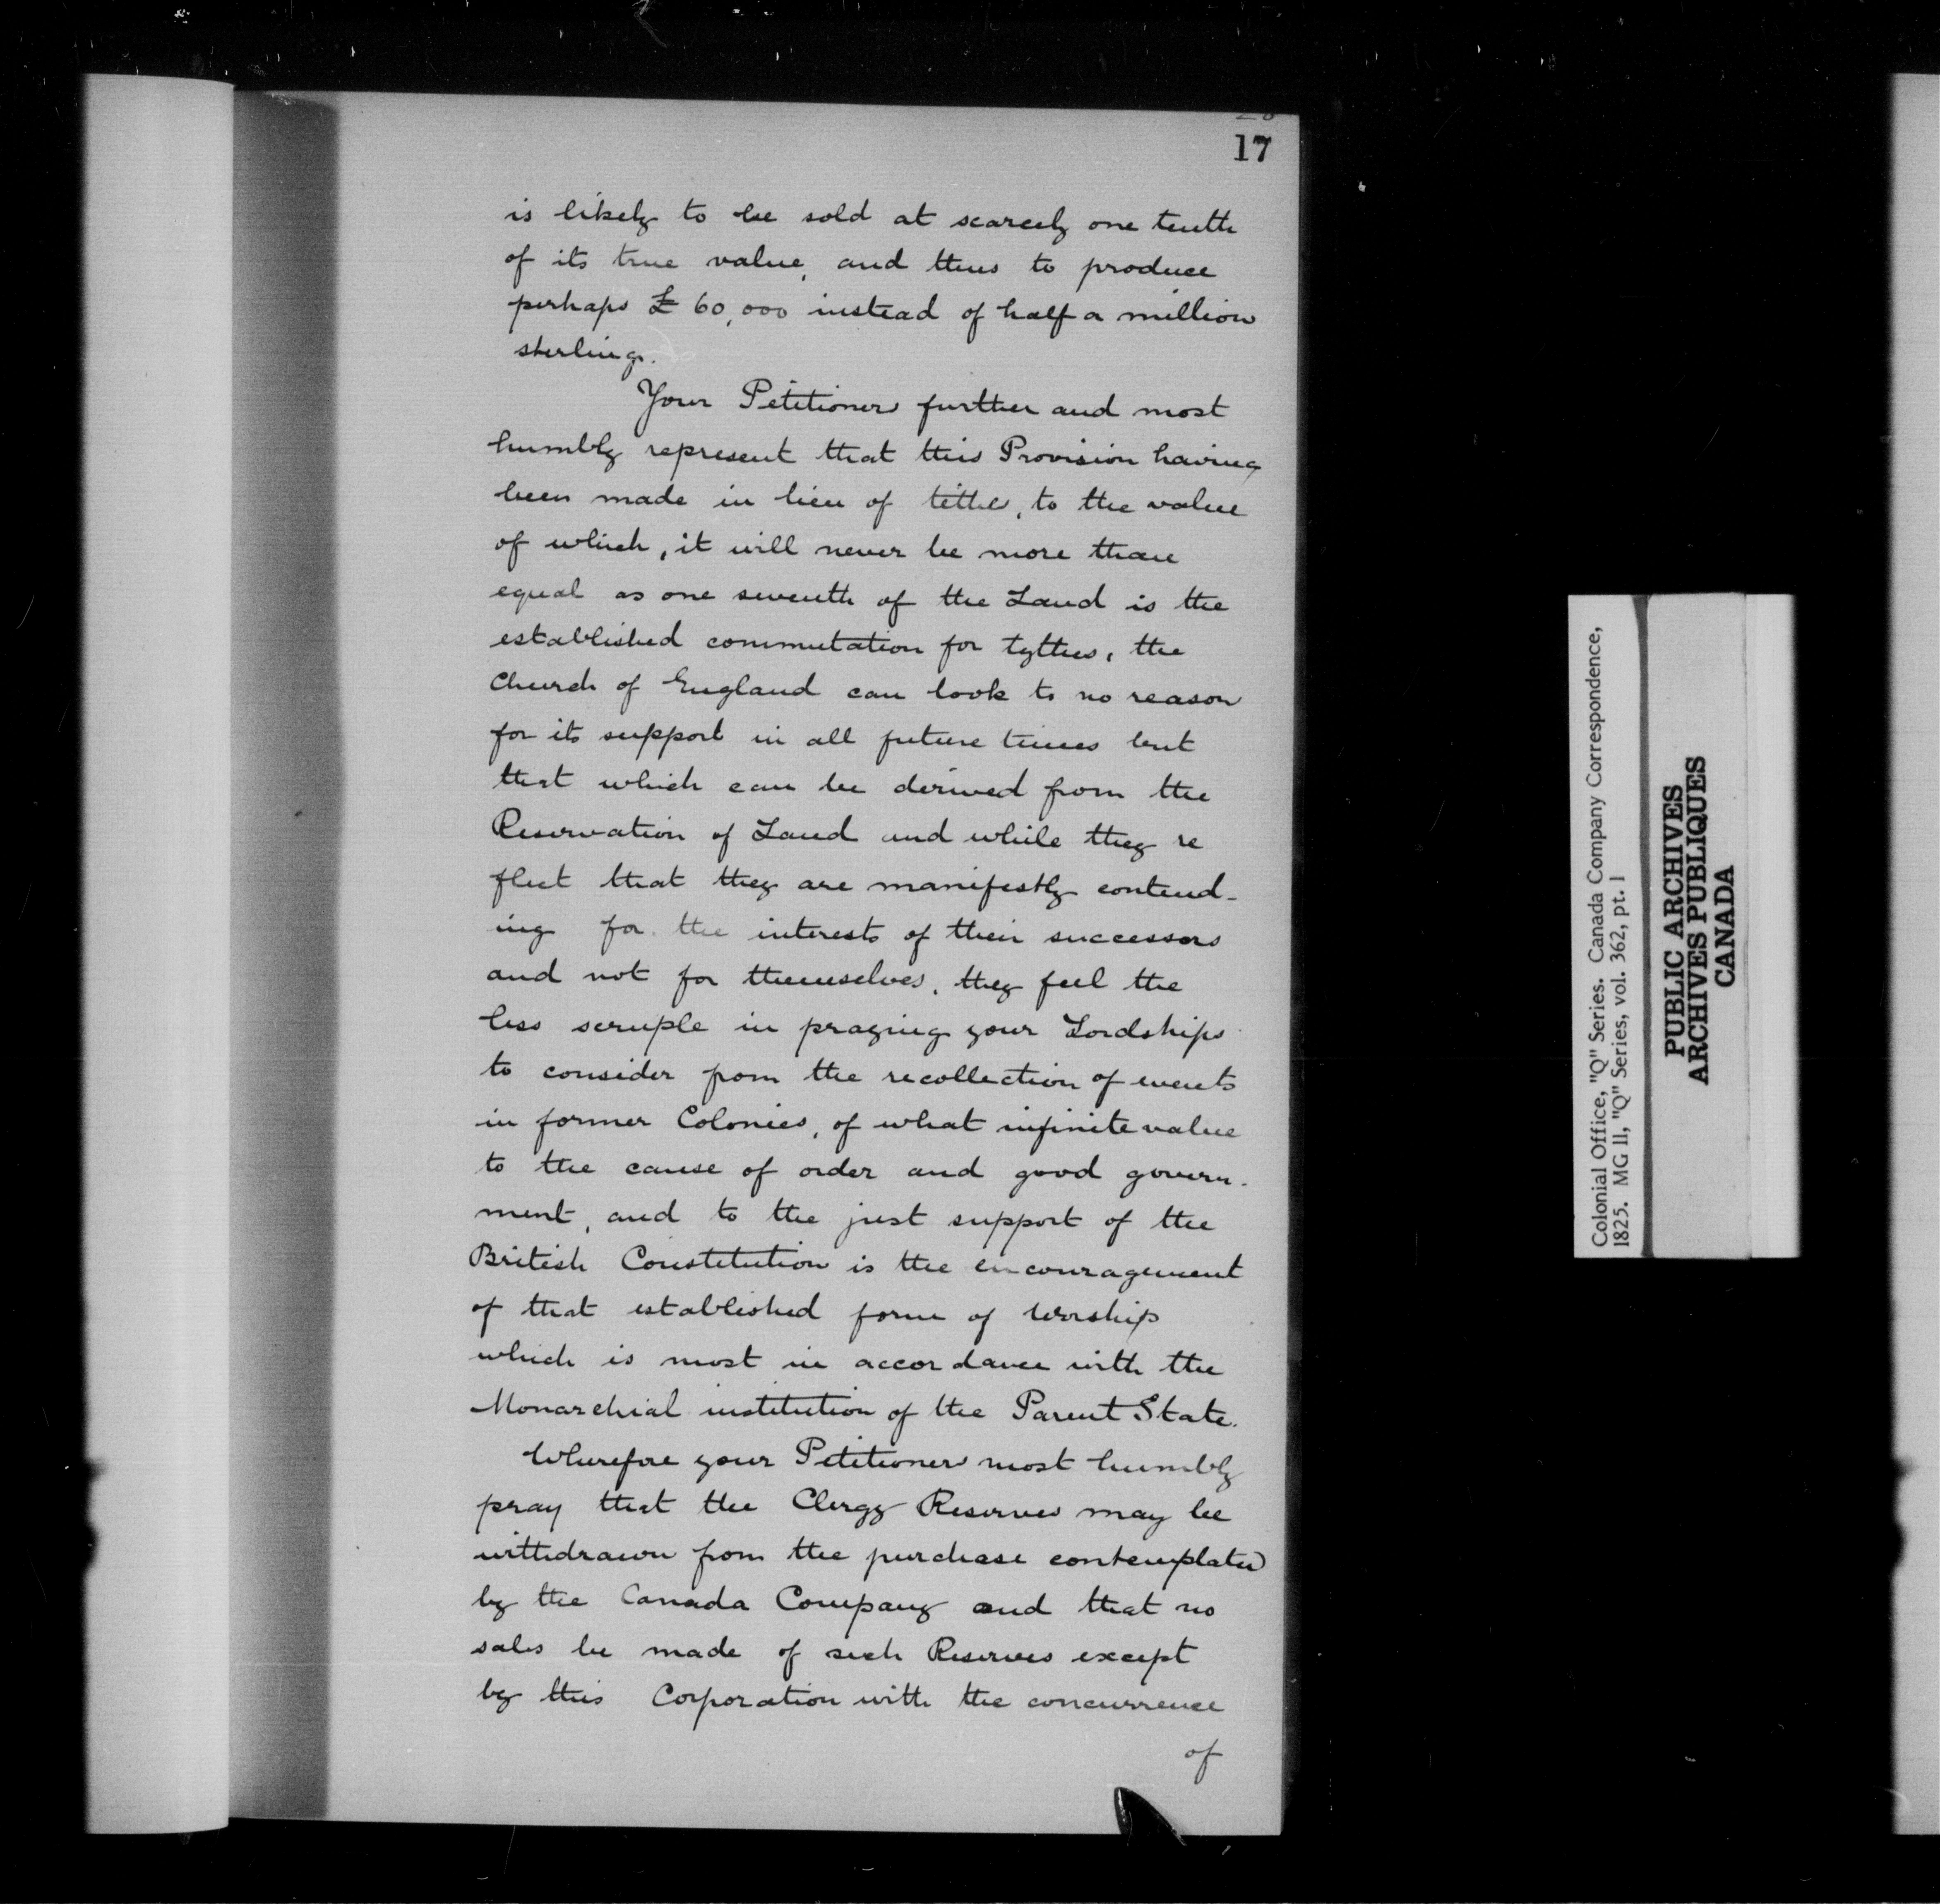 17
is likely to be sold at scarcely one tenth
of its true value, and thus to produce
perhaps £ 60,000 instead of half a million
sterling.
Your Petitioners further and most
humbly represent that this Provision having
been made in lieu of tithes, to the value
of which, it will never be more than
equal as one seventh of the Land is the
established commutation for tythes, the
Church of England can look to no reason
for its support in all future times but
that which can be derived from the
Reservation of Land and while they re
flect that they are manifestly contend-
ing for the interests of their successors
and not for themselves, they feel the
less scruple in praying your Lordships
to consider from the recollection of events
in former Colonies, of what infinite value
to the cause of order and good govern-
ment, and to the just support of the
British Constitution is the encouragement
of that established form of Worship
which is most in accordance with the
Monarchial institution of the Parent State.
Wherefore your Petitioners most humbly
pray that the Clergy Reserves may be
withdrawn from the purchase contemplated
by the Canada Company and that no
sales be made of such Reserves except
by this Corporation with the concurrence
of
Colonial Office, "Q" Series. Canada Company Correspondence,
1825. MG 11, "Q" Series, vol. 362, pt. 1
PUBLIC ARCHIVES
ARCHIVES PUBLIQUES
CANADA